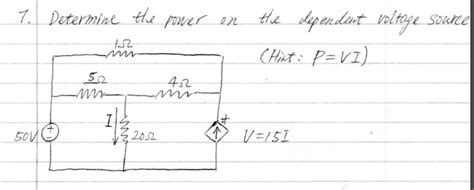 7. Determine the power on the dependent voltage source
(Hint: P=VI)
1Ω
5Ω
4Ω
50V
I
20Ω
V=15I